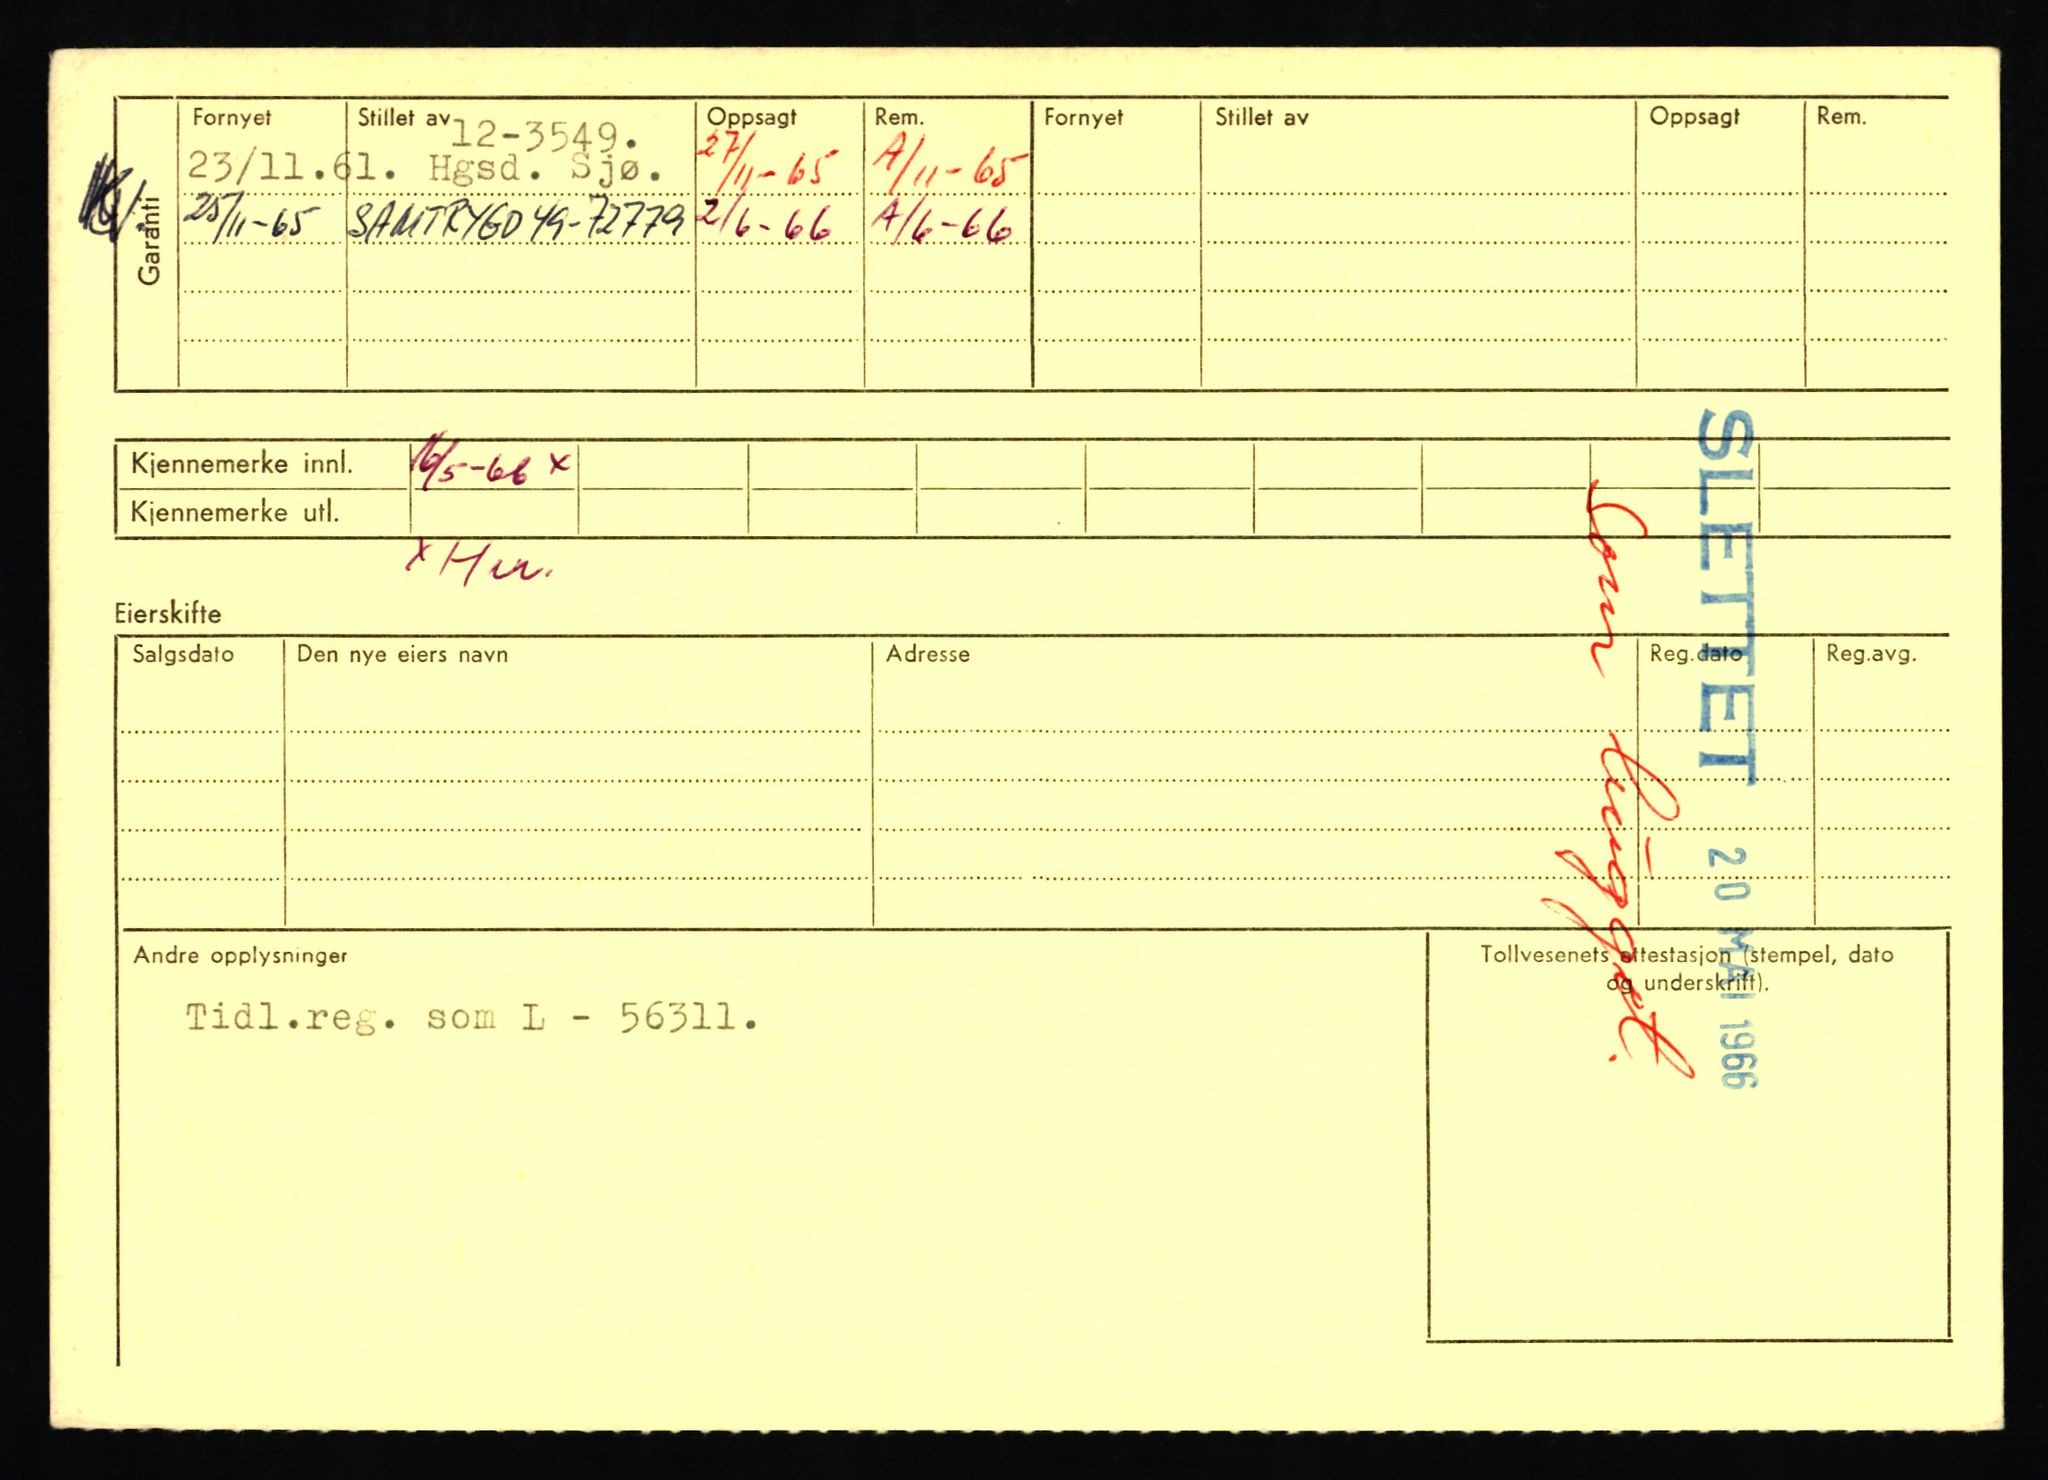 Garanti
Fornyet Stillet av Oppsagt Rem. Fornyet Stillet av Oppsagt Rem.
12-3549.
23/11.61. Hgsd. Sjø. 27/11-65 A/11-65
25/11-65 SAMTRYGD 49-72779 2/6-66 A/6-66
Kjennemerke innl. 16/5-66 x
Kjennemerke utl.
x
Eierskifte
Salgsdato Den nye eiers navn Adresse Reg.dato Reg.avg.
Andre opplysninger
Tidl.reg. som L - 56311.
Tollvesenets attestasjon (stempel, dato
og underskrift).
SLETTET 20 MAI 1966
Som